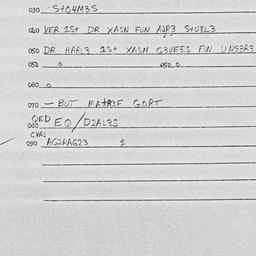 030 - St04M3S
040 VER 1St DR XASN FUN AJP3 StU8L3
050 DR HARL3 1St XASN G3VEES FUN UNS3R3
051 0 052 0
060 0
070 — BUT MAtR3F GORT
QED
080 EQ/D2AL3S
090 AG2RAG23 $